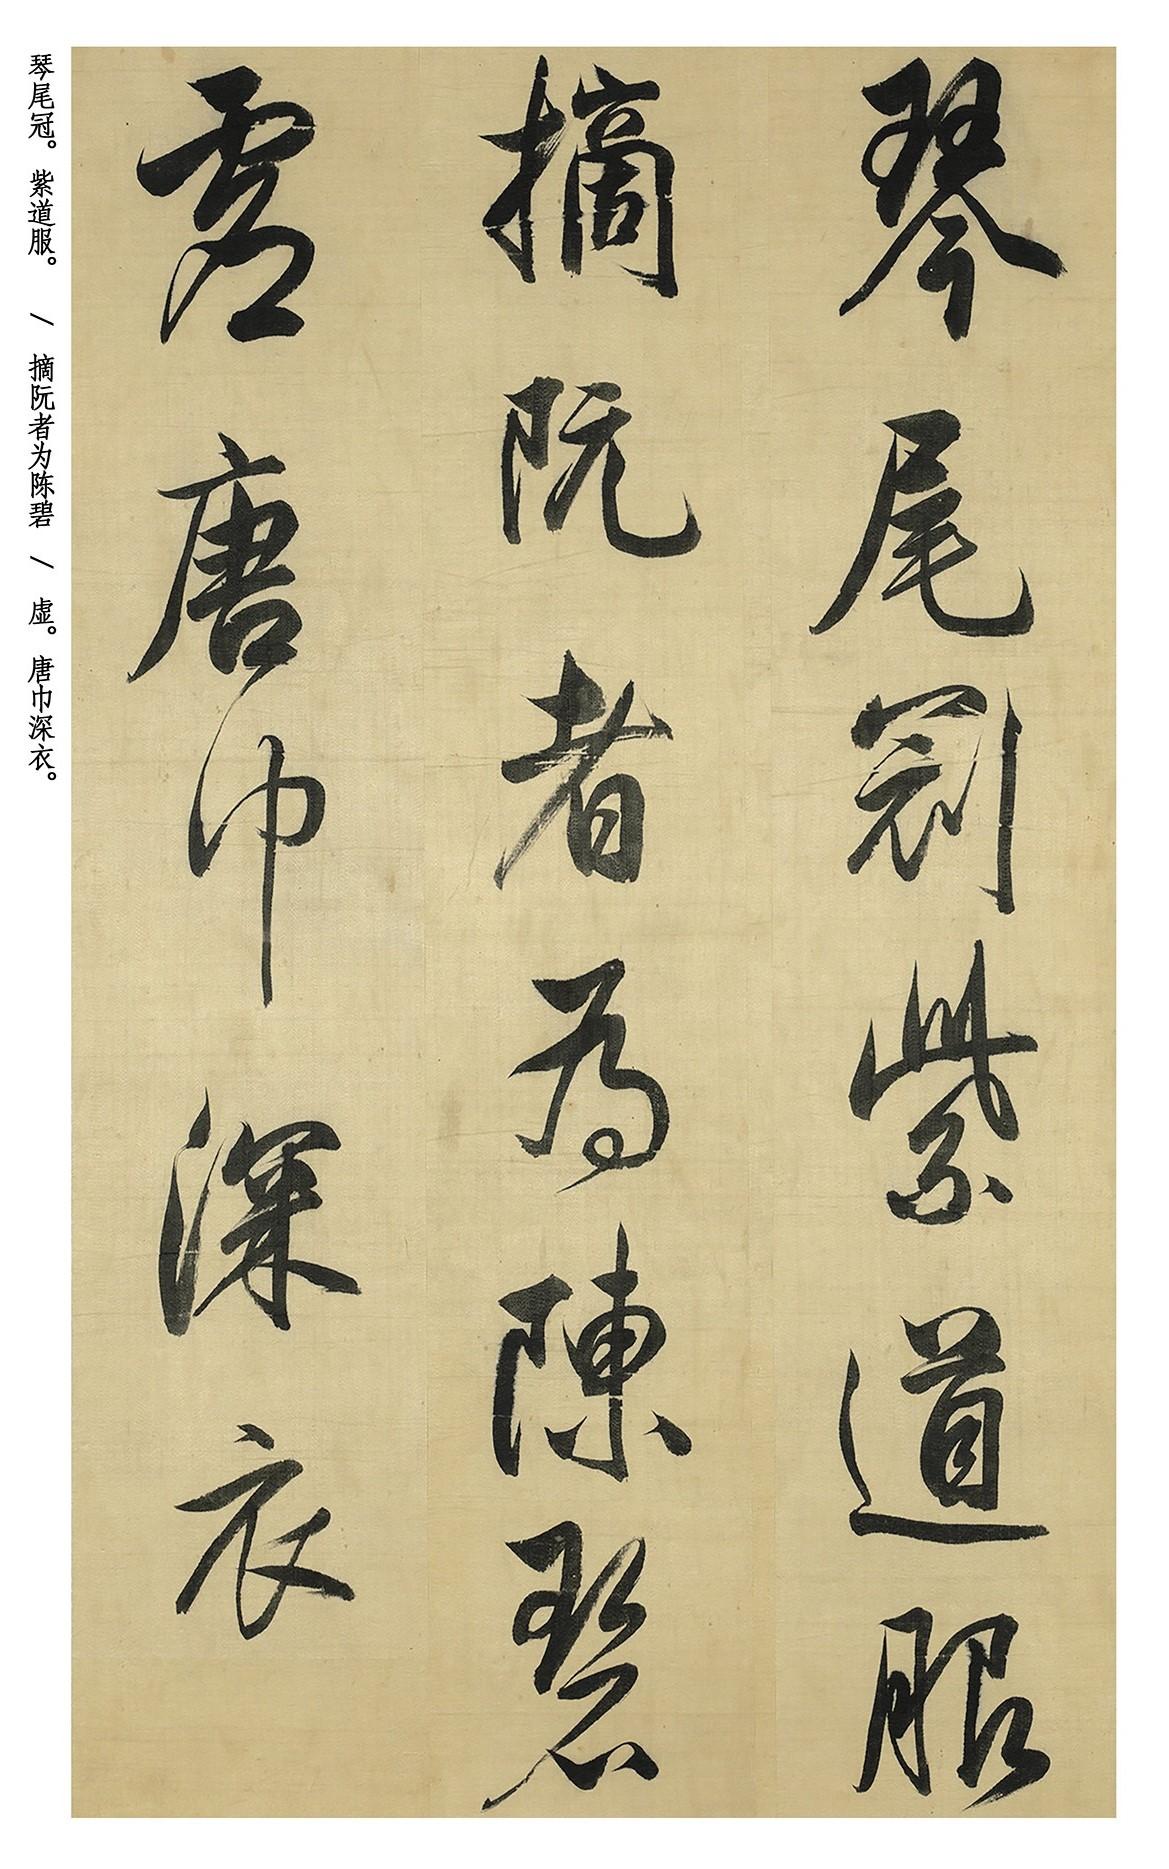 琴尾冠紫道服
摘阮者為陳碧
虛唐巾深衣
琴尾冠。紫道服。 / 摘阮者为陈碧 / 虚。唐巾深衣。